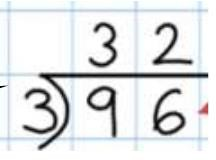 3 2
3) 9 6